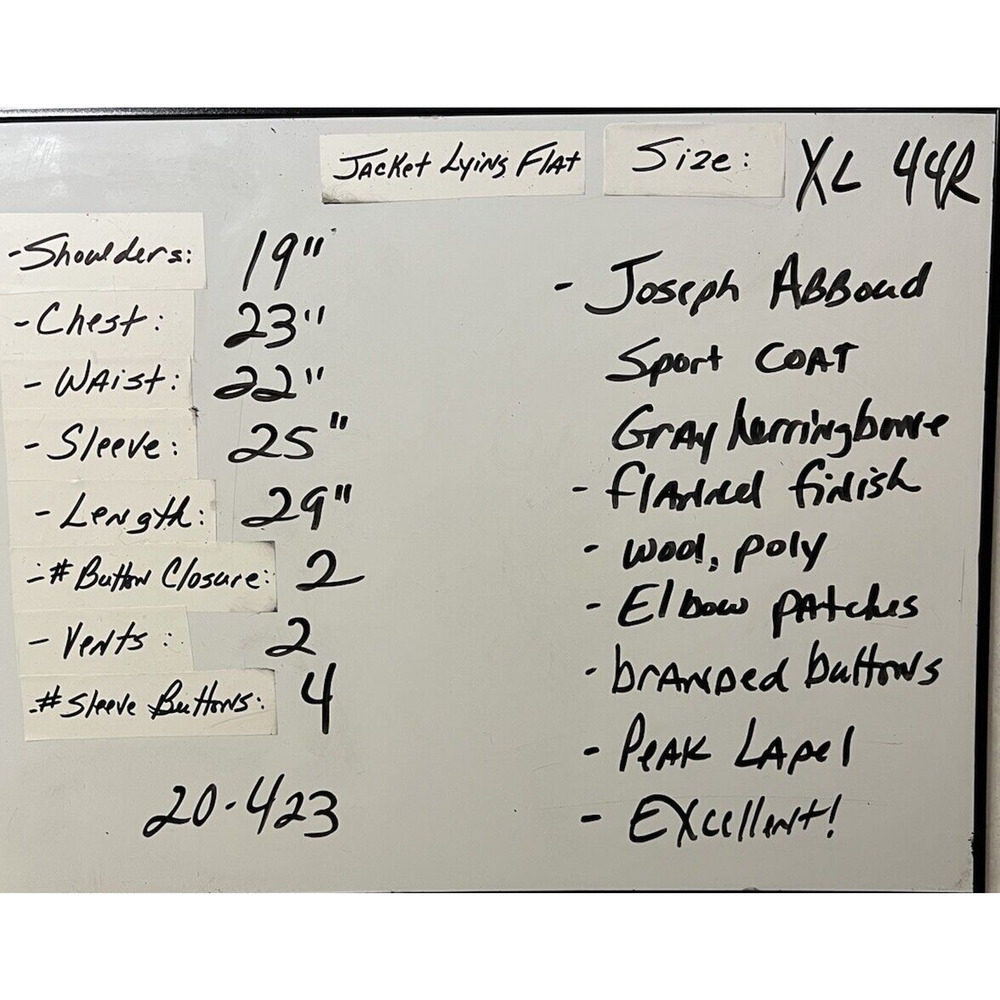 Jacket Lying Flat
Size: XL 44R
- Shoulders: 19"
- Chest: 23"
- Waist: 22"
- Sleeve: 25"
- Length: 29"
- # Button Closure: 2
- Vents: 2
- # Sleeve Buttons: 4
20-423
- Joseph Abboud
Sport Coat
Gray herringbone
- flannel finish
- wool, poly
- Elbow patches
- branded buttons
- Peak Lapel
- Excellent!